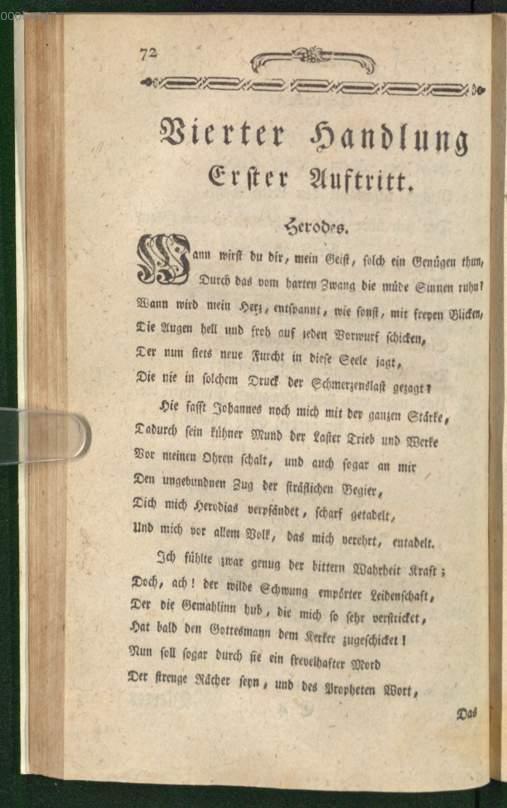 72
Vierter Handlung
Erster Auftritt.
Herodes.
Wann wirst du dir, mein Geist, solch ein Genügen thun,
Durch das vom harten Zwang die müde Sinnen ruhn?
Wann wird mein Herz, entspannt, wie sonst, mit freyen Blicken,
Die Augen hell und froh auf jeden Vorwurf schicken,
Der nun stets neue Furcht in diese Seele jagt,
Die nie in solchem Druck der Schmerzenslast gezagt?
Hie fasst Johannes noch mich mit der ganzen Stärke,
Dadurch sein kühner Mund der Laster Trieb und Werke
Vor meinen Ohren schalt, und auch sogar an mir
Den ungebundnen Zug der sträflichen Begier,
Dich mich Herodias verpfändet, scharf getadelt,
Und mich vor allem Volk, das mich verehrt, entadelt.
Ich fühlte zwar genug der bittern Wahrheit Kraft;
Doch, ach! der wilde Schwung empörter Leidenschaft,
Der die Gemahlinn hub, die mich so sehr verstricket,
Hat bald den Gottesmann dem Kerker zugeschicket!
Nun soll sogar durch sie ein frevelhafter Mord
Der strenge Rächer seyn, und des Propheten Wort,
Das